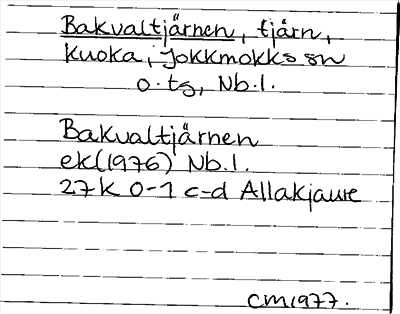 Bakvaltjärnen, tjärn,
Kuoka, Jokkmokks sn
o. tg, Nb.l.
Bakvaltjärnen
ek(1976) Nb.l.
27K 0-1 c-d Allakjaure
CM1977.